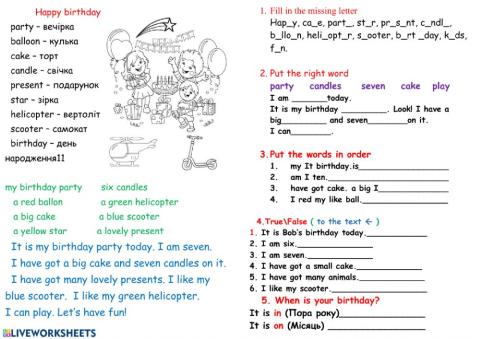 Happy birthday
party – вечірка
balloon – кулька
cake – торт
candle – свічка
present – подарунок
star – зірка
helicopter – вертоліт
scooter – самокат
birthday – день
народження11
my birthday party six candles
a red ballon a green helicopter
a big cake a blue scooter
a yellow star a lovely present
It is my birthday party today. I am seven.
I have got a big cake and seven candles on it.
I have got many lovely presents. I like my
blue scooter. I like my green helicopter.
I can play. Let's have fun!
1. Fill in the missing letter
Hap_y, ca_e, part_, st_r, pr_s_nt, c_ndl_,
b_llo_n, heli_opt_r, s_ooter, b_rt _day, k_ds,
f_n.
2. Put the right word
party candles seven cake play
I am _______today.
It is my birthday _________. Look! I have a
big_________ and seven________on it.
I can________.
3.Put the words in order
1. my It birthday.is__________________
2. am I ten._________________________
3. have got cake. a big I_______________
4. I red my like ball.___________________
4.True\False ( to the text ← )
1. It is Bob's birthday today.____________
2. I am six.___________________
3. I am seven.________________
4. I have got a small cake.______________
5. I have got many animals.____________
6. I like my scooter.____________
5. When is your birthday?
It is in (Пора року)_________________
It is on (Місяць) ___________________
LIVEWORKSHEETS